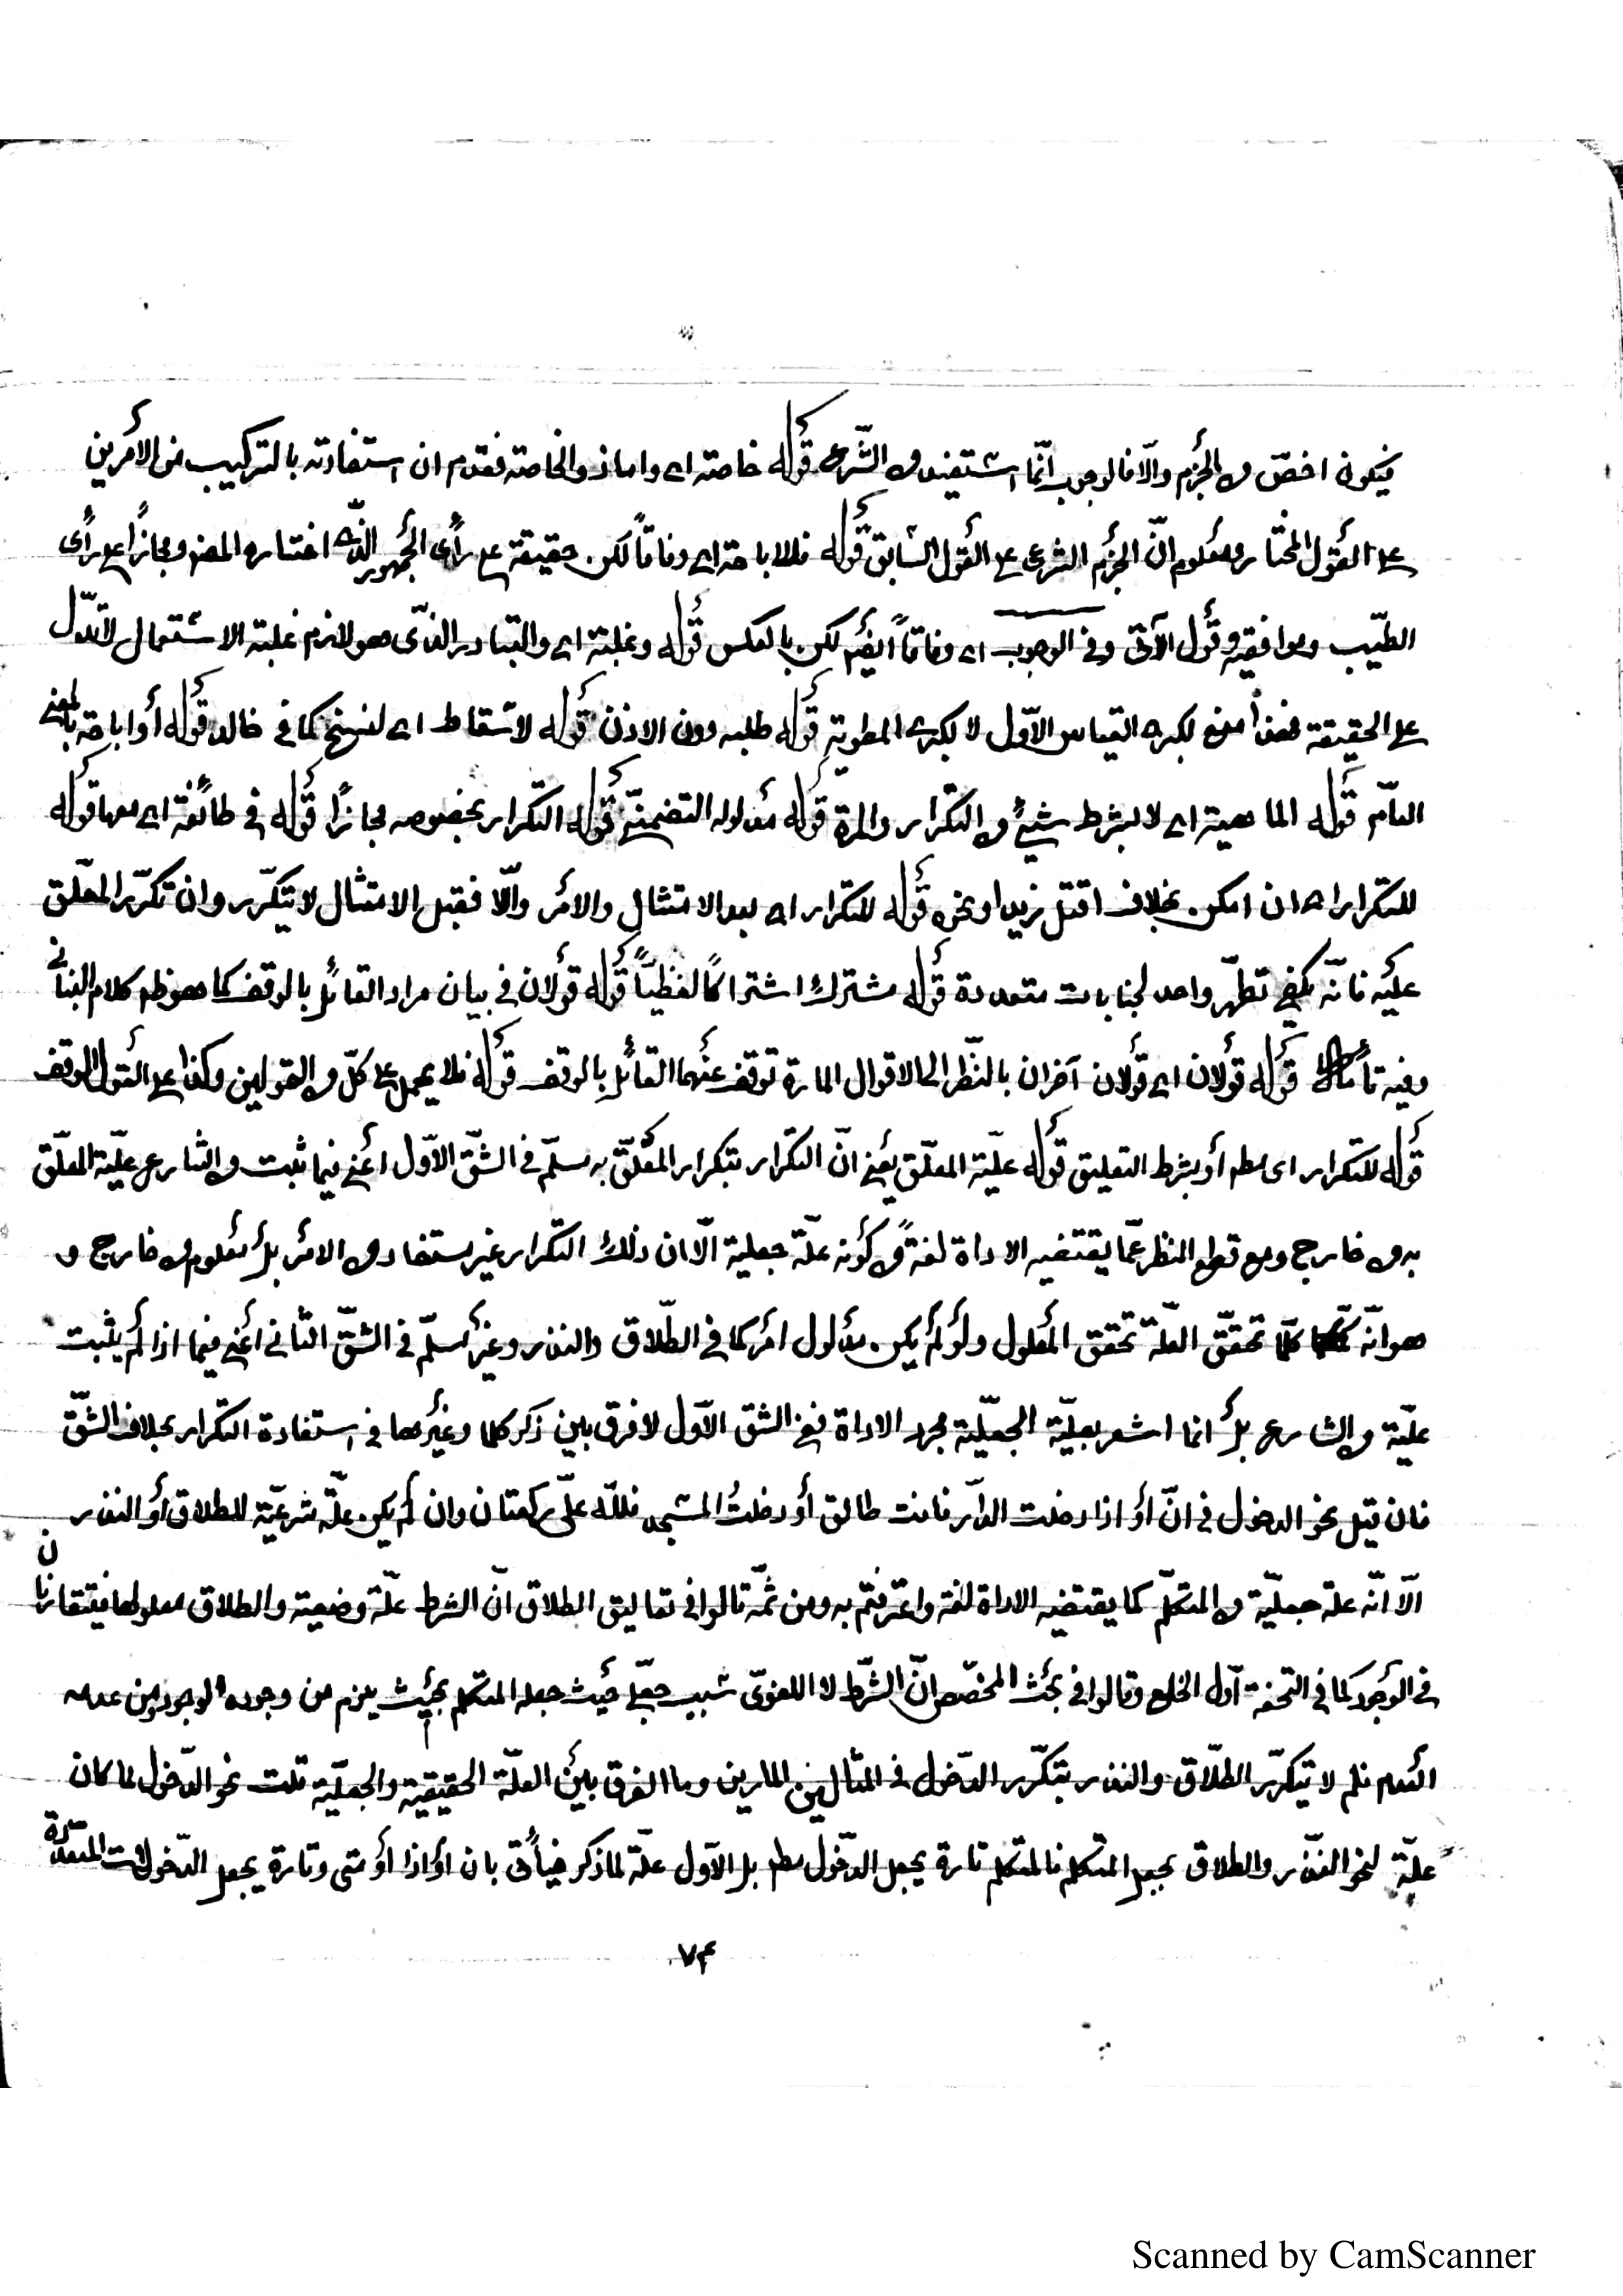 فيكون اخصّ من الجزم والّا فالوجوب انّما استفيد من الشّرع قوله خاصته اى واما ذو الخاصة فقدم ان استفادته بالتركيب من الأمرين
على القول المختار ومعلوم انّ الجزم الشرعى على القول السّابق قوله فللاباحة اى وفاقاً لكن حقيقة على رأى الجمهور الّذى اختاره المص ومجازاً على رأى
الطيّب وموافقيه وقول الآتى وفى الوجوب اى وفاقاً أيضً لكن بالعكس قوله وغلبته اى والتبادر الذّى هو لازم غلبة الاستعمال لا تدلّ
على الحقيقة فهذا منع لكبرى القياس الاوّل لا لكبرى المطوية قوله طلبه دون الاذن قوله لاسقاط اى لنسخ كما فى خالد قوله أو اباحة بالمعنى
العامّ قوله الماهية اى لا بشرط شئ من التكرار والمرة قوله مدلوله التضمنىّ قوله التكرار بخصوصه مجازاً قوله فى طائفة اى معها قوله
للتكرار اى ان امكن بخلاف اقتل زيدا ونحوه قوله للتكرار اى بعد الامتثال والامر والّا فقبل الامتثال لا يتكّرر وان تكرّر المعلّق
عليه فانّه يكفى تطهّر واحد لجنابات متعددة قوله مشترك اشتراكاً لفظيّاً قوله قولان فى بيان مراد القائل بالوقف كما هو ظ كلام البنانى
وفيه تأمّل قوله قولان اى قولان آخران بالنّظر الى الاقوال المارة توقف عنهما القائل بالوقف قوله فلا يحمل على كلّ من القولين وكذا على القول بالوقف
قوله للتكرار اى مط أو بشرط التعليق قوله علّية المعلّق يعنى انّ التكرار بتكرار المعلّق به مسلّم فى الشّق الاوّل اعنى فيما ثبت من الشارع علّية المعلّق
به من خارج ومع قطع النظر عمّا يقتضيه الاداة لغةً من كونه علّة جعلية الّا ان ذلك التكرار غير مستفاد من الامر بل معلوم من خارج و
هو انّه كلّما تحقّق العلّة تحقق المعلول ولو لم يكن مدلول امر كما فى الطّلاق والنذر وغير مسلّم فى الشقّ الثانى اعنى فيما اذا لم يثبت
علّية من الشارع بل انما اشعر بعلّيته الجعلّية مجرد الاداة ففى الشق الاوّل لا فرق بين ذكر كلما وغيرها فى استفادة التكرار بخلاف الشّق
فان قيل نحو الدخول فى انّ أو اذا دخلت الدّار فانت طالق أو دخلتُ المسجد فللّه علىّ ركعتان وان لم يكن علّة شرعيّة للطلاق أو النذر
الّا انّه علة جعليّة من المتكلّم كما يقتضيه الاداة لغة واعترفتم به ومن ثمّة قالوا فى تعاليق الطلاق انّ الشرط علّة وضعية والطلاق معلولها فيتقارنان
فى الوجود كما فى التحفة اوّل الخلع وقالوا فى بحث المخصّص انّ الشّرط لا اللغوىّ سبب جعلّى حيث جعله المتكلم بحيث يلزم من وجوده الوجود ومن عدمه
العدم فلم لا يتكرّر الطلّاق والنذر بتكّرر الدّخول فى المثالين المارين وما الفرق بين العلّة الحقيقية والجعلّية قلت نحو الدّخول لما كان
علّة لنحو النّذر والطلاق بجعل المتكلم فالمتكلم تارة يجعل الدّخول مط بل الاوّل علّة لما ذكر فيأتى بان او اذا أو متى وتارة يجعل الدّخولات المتعدّدة
٧٤
Scanned by CamScanner